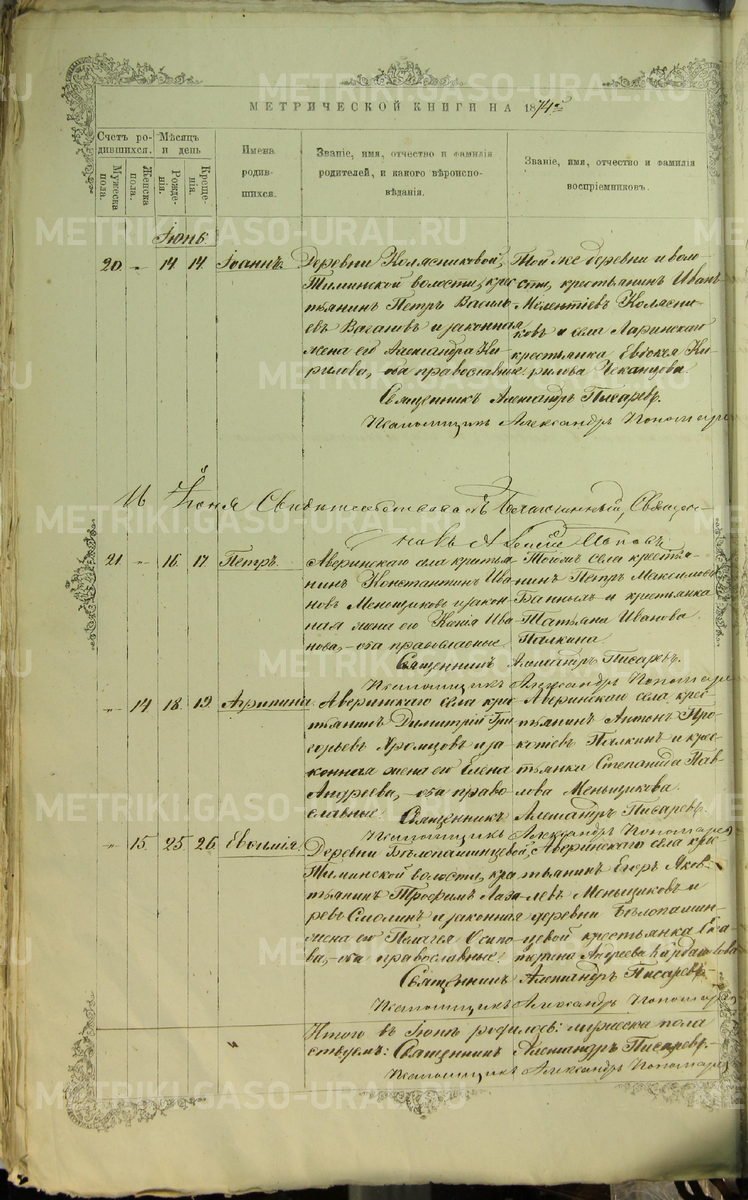 МЕТРИЧЕСКОЙ КНИГИ НА 1874 г.
Счетъ родившихся.
Мужеска пола.
Женска пола.
Мѣсяцъ и день
Рожденія.
Крещенія.
Имена родившихся.
Званіе, имя, отчество и фамилія родителей, и какого вѣроисповѣданія.
Званіе, имя, отчество и фамилія воспріемниковъ.
Іюнь
20. „ 14 14. Іоаннъ.
Деревни Колясниковой,
Тиминской волости, крес
тьянинъ Петръ Василь
евъ и законная
жена его Александра Ки-
рилова, оба православные
Той же деревни и воло
сти, крестьянинъ Иванъ
Мелентіевъ Колясни-
ковъ и села Ларинскаго
крестьянка Евдокея Ки-
рилова
Священникъ Александръ Писаревъ.
Псаломщикъ Александръ Пономарев
16 Іюня Свидѣтельствовалъ Благочинный, Священ-
никъ
21. „ 16. 17. Петръ.
Аверинскаго села крестья
нинъ Константинъ Ива
новъ Меньщиковъ и закон
ная жена его Ива
нова, оба православные
Тогожъ села крестья-
нинъ Петръ Максимовъ
и крестьянка
Татьяна Иванова
Палкина.
Священникъ Александръ Писаревъ.
Псаломщикъ Александръ Пономарев
„ 14. 18. 19. Агрипина
Аверинскаго села крес
тьянинъ Димитрій Гри
горьевъ Храмцовъ и за
конная жена его Елена
Андреева, оба право-
славные.
Аверинскаго села, крес
тьянинъ Антонъ Про-
копіевъ Палкинъ и крес
тьянка Степанида Пав
лова Меньщикова.
Священникъ Александръ Писаревъ.
Псаломщикъ Александръ Пономарев
„ 15. 25 26. Евфимія.
Деревни Бѣлопашинцевой,
Тиминской волости, крес
тьянинъ Трофимъ Лаза
ревъ Смолинъ и законная
жена его Пелагея Осипо
ва, оба православные.
Аверинскаго села крес
тьянинъ Егоръ Яков
левъ Меньщиковъ и
деревни Бѣлопашин-
цевой крестьянка Ека
терина Андреева
Священникъ Александръ Писаревъ.
Псаломщикъ Александръ Пономарев
Итого въ Іюнѣ родилось: мужеска пола
Священникъ Александръ Писаревъ.
Псаломщикъ Александръ Пономарев
METRIKI.GASO-URAL.RU